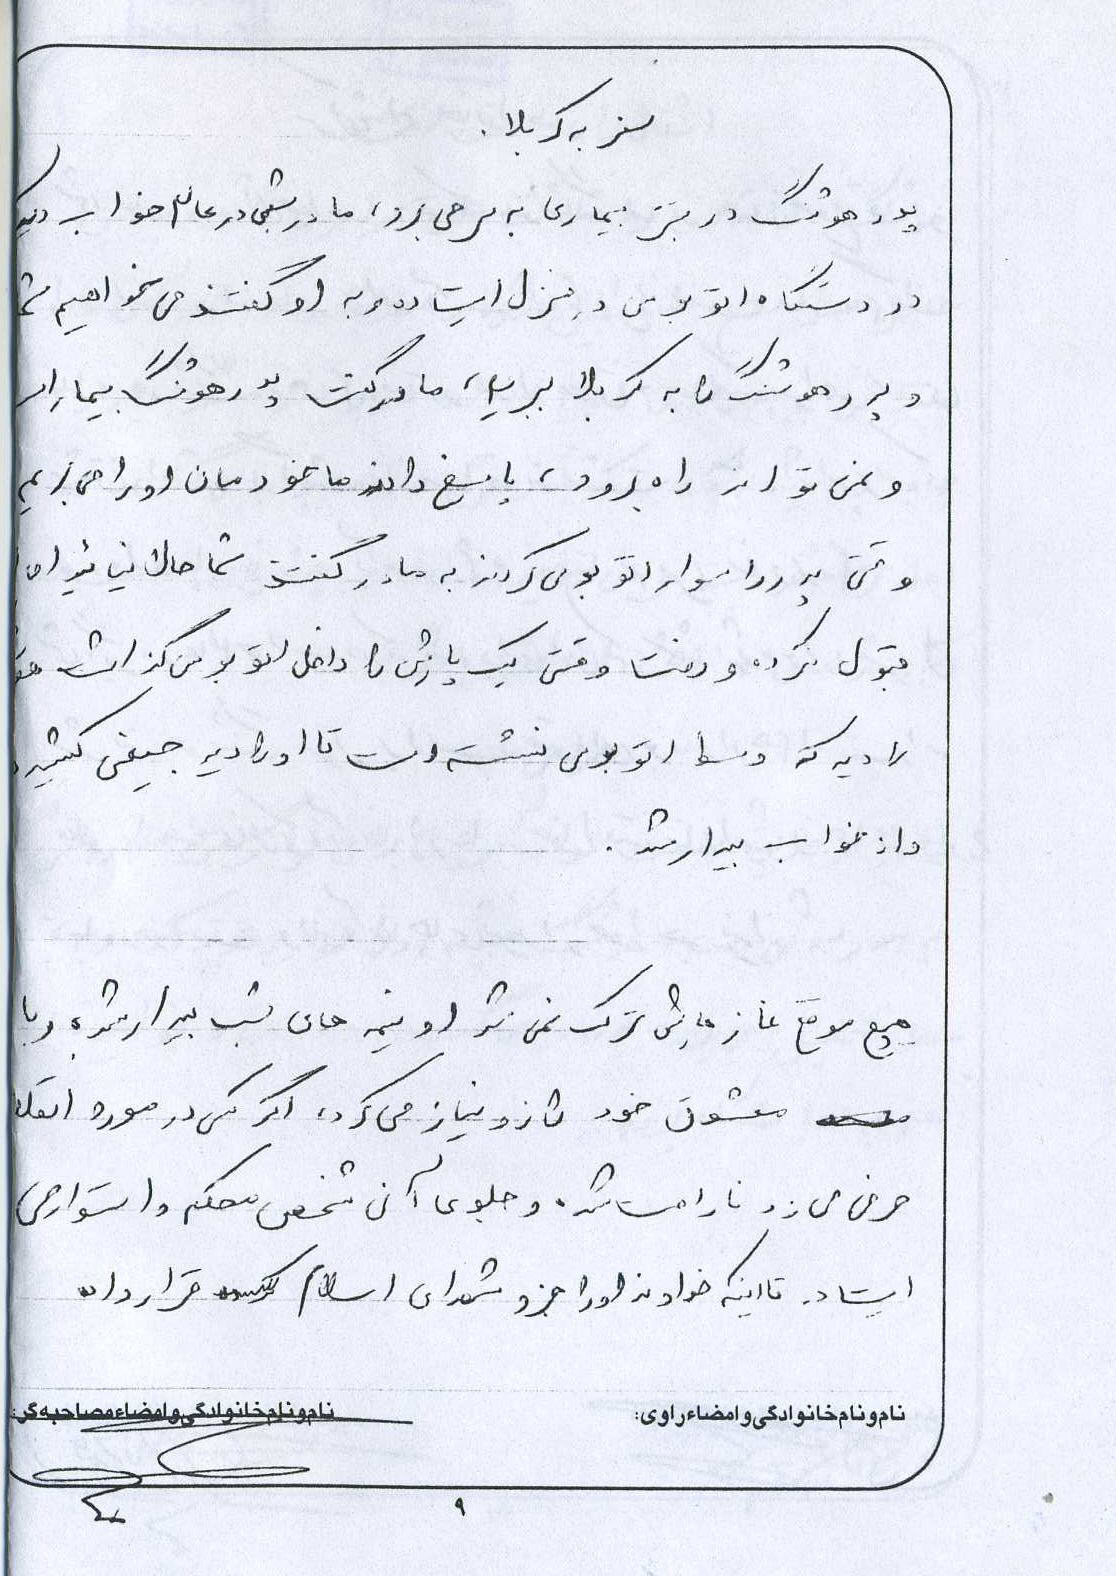 سفر به کربلا.
پدر هوشنگ در بستر بیماری به سر می برد، مادر شبی در عالم خواب دید
دو دستگاه اتوبوس در منزل ایستاده و به او گفتند می خواهیم شما
و پدر هوشنگ را به کربلا ببریم، مادر گفت پدر هوشنگ بیمار است
و نمی تواند راه برود، پاسخ دادند ما خودمان او را می بریم
وقتی پدر را سوار اتوبوس کردند به مادر گفتند شما حالا نیائید اما
قبول نکرده و رفت وقتی یک پایش را داخل اتوبوس گذاشت
را دید که وسط اتوبوس نشسته است تا او را دید جیغی کشید
و از خواب بیدار شد.
هیچ موقع نمازهایش ترک نمی شد او نیمه های شب بیدار شده و با
معشوق خود راز و نیاز می کرد، اگر کسی در مورد انقلاب
حرفی می زد ناراحت شده و جلوی آن شخص محکم و استوار می
ایستاد. تا اینکه خداوند او را جزو شهدای اسلام قرار داد
نام و نام خانوادگی و امضاء راوی:
نام و نام خانوادگی و امضاء مصاحبه گر:
۹